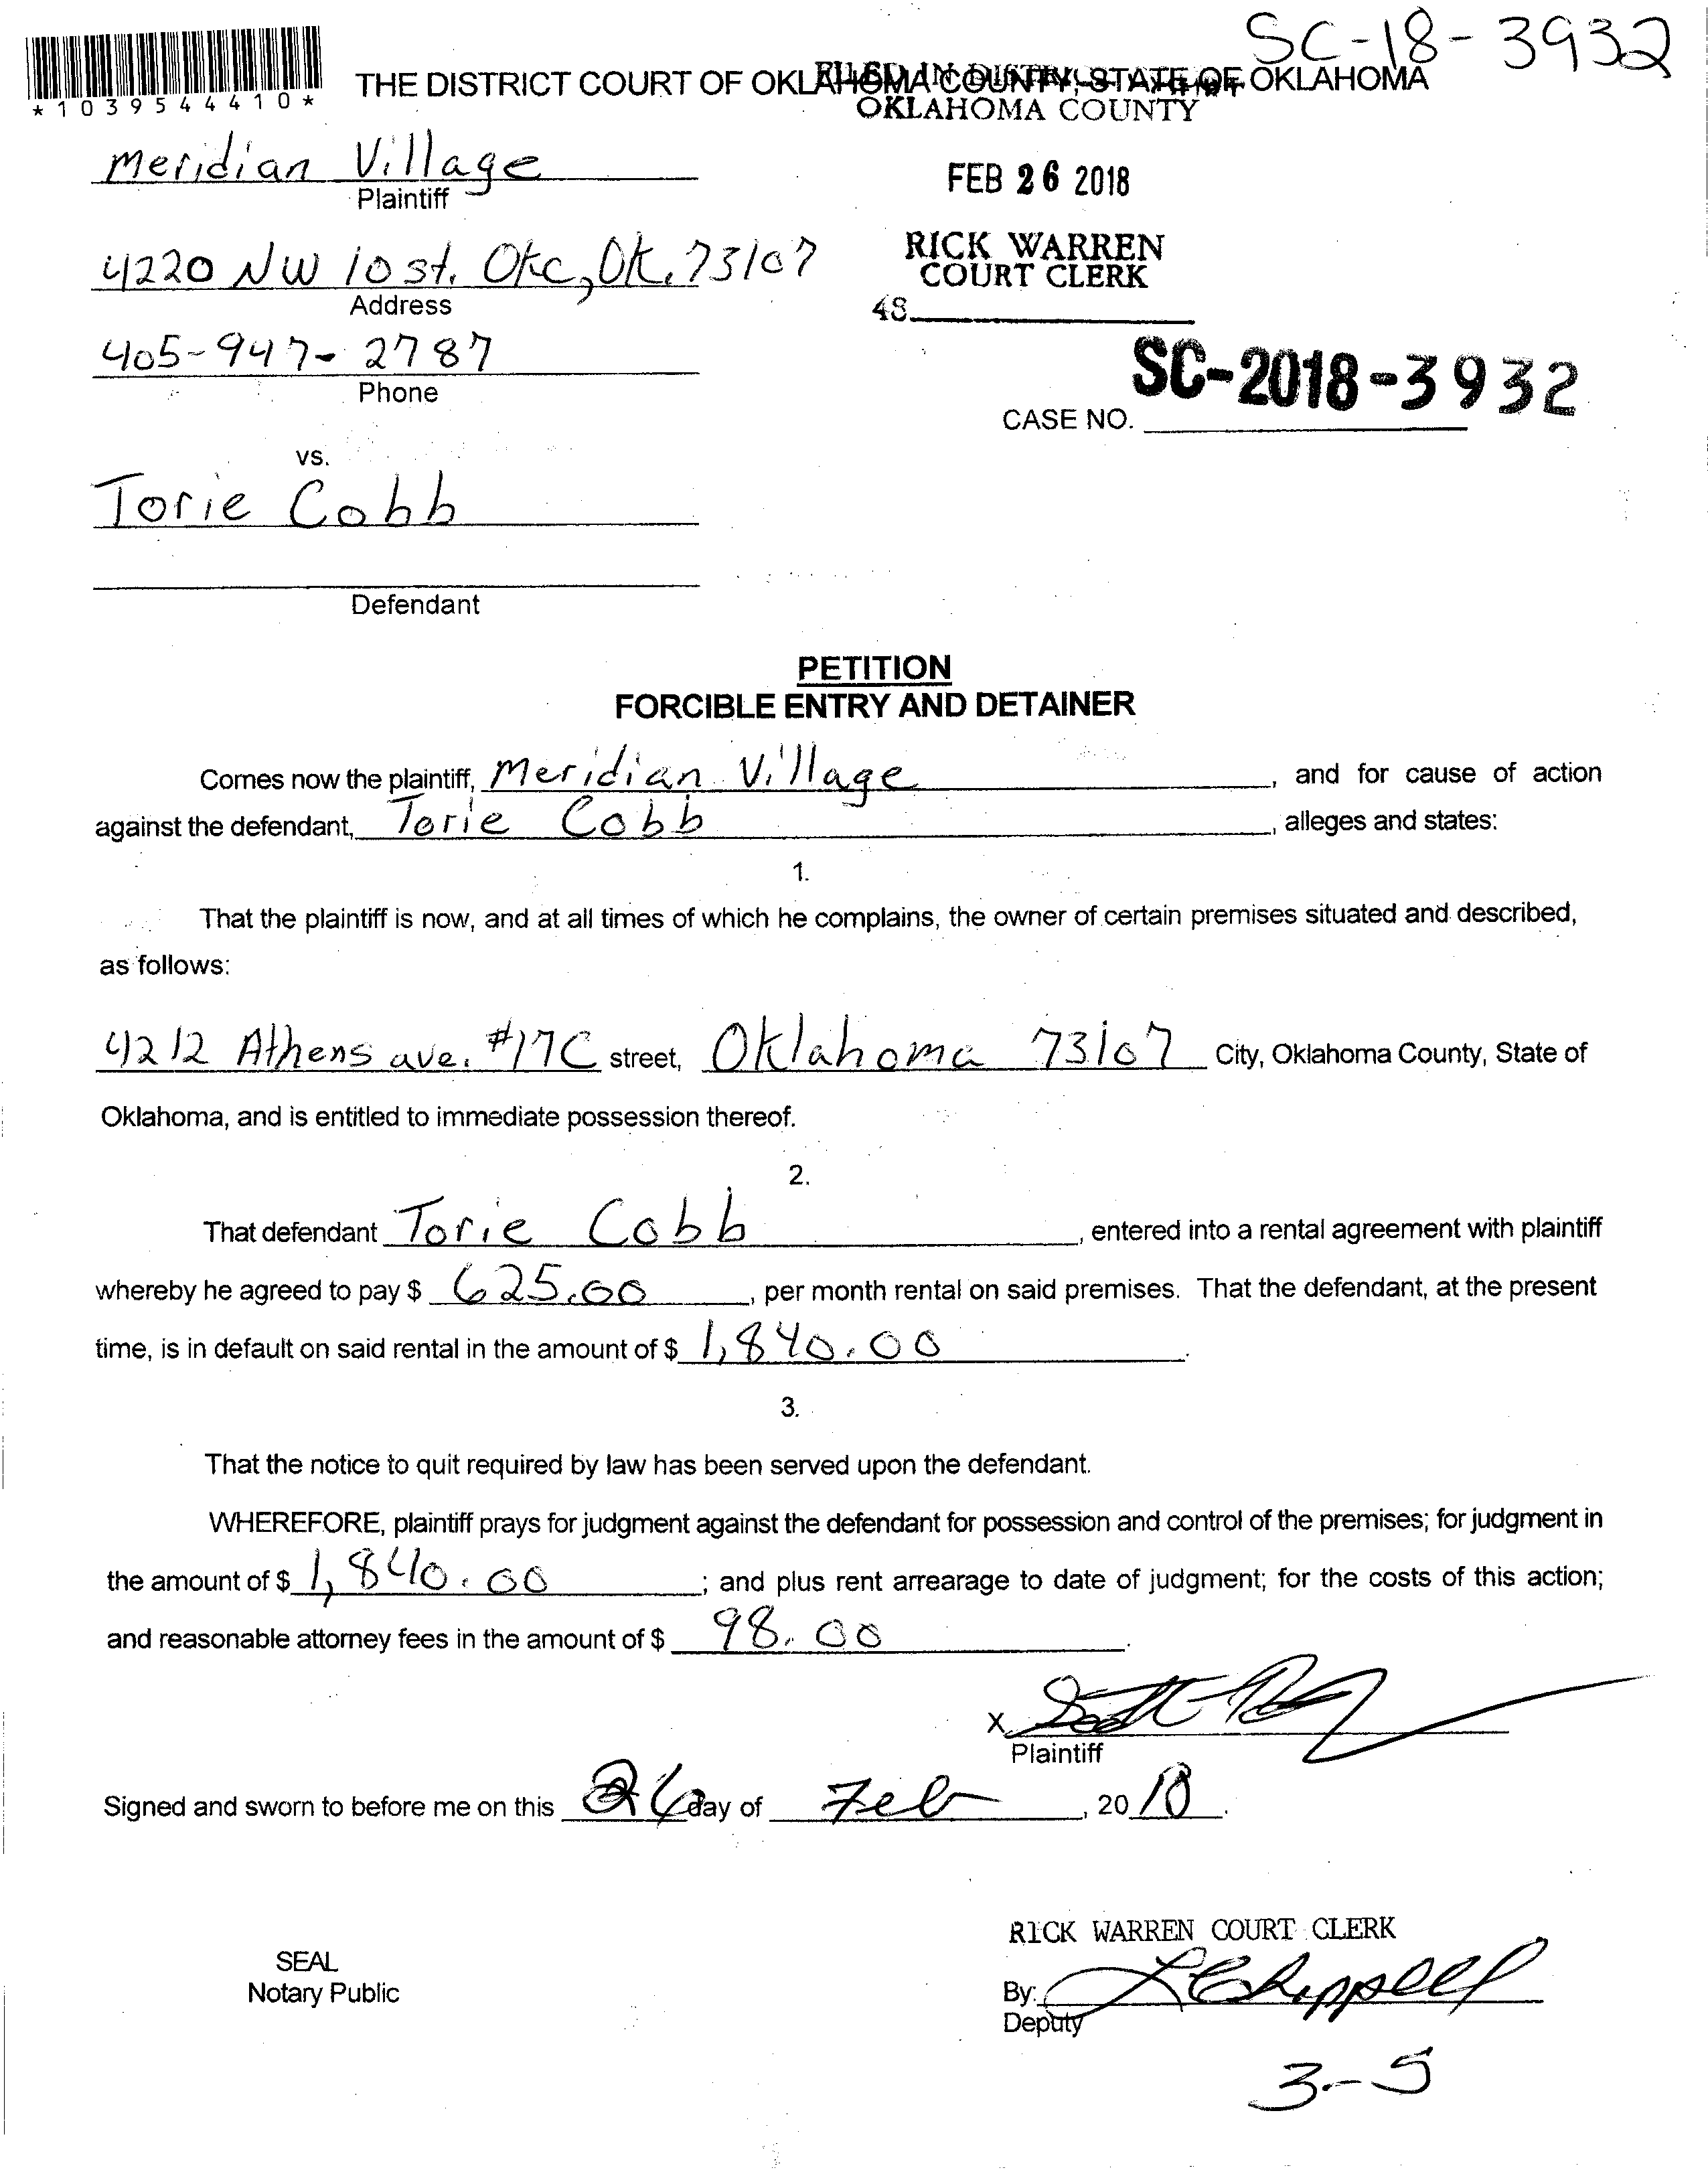 SC-18-3932
*1039544410*
THE DISTRICT COURT OF OKLAHOMA COUNTY, STATE OF OKLAHOMA
FILED IN
OKLAHOMA COUNTY
Meridian Village
Plaintiff
FEB 26 2018
4220 NW 10 st. Okc, Ok. 73107
Address
RICK WARREN
COURT CLERK
48
405-947-2787
Phone
SC-2018-3932
CASE NO.
vs.
Torie Cobb
Defendant
PETITION
FORCIBLE ENTRY AND DETAINER
Comes now the plaintiff, Meridian Village, and for cause of action
against the defendant, Torie Cobb, alleges and states:
1.
That the plaintiff is now, and at all times of which he complains, the owner of certain premises situated and described,
as follows:
4212 Athens ave. #17C street, Oklahoma 73107 City, Oklahoma County, State of
Oklahoma, and is entitled to immediate possession thereof.
2.
That defendant Torie Cobb, entered into a rental agreement with plaintiff
whereby he agreed to pay $ 625.00, per month rental on said premises. That the defendant, at the present
time, is in default on said rental in the amount of $ 1,840.00.
3.
That the notice to quit required by law has been served upon the defendant.
WHEREFORE, plaintiff prays for judgment against the defendant for possession and control of the premises; for judgment in
the amount of $ 1,840.00; and plus rent arrearage to date of judgment; for the costs of this action;
and reasonable attorney fees in the amount of $ 98.00.
X
Plaintiff
Signed and sworn to before me on this 26 day of Feb, 2018.
RICK WARREN COURT CLERK
SEAL
Notary Public
By:
Deputy
3-5